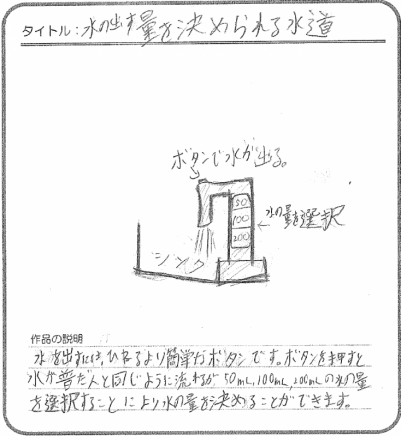 タイトル:水の出す量を決められる水道
ボタンで水が出る。
50
100
200
水の量を選択
シンク
作品の説明
水を出すには、ひねるより簡単なボタンです。ボタンを押すと
水が普だんと同じように流れるが50mL,100mL,200mLの水の量
を選択することにより水の量を決めることができます。